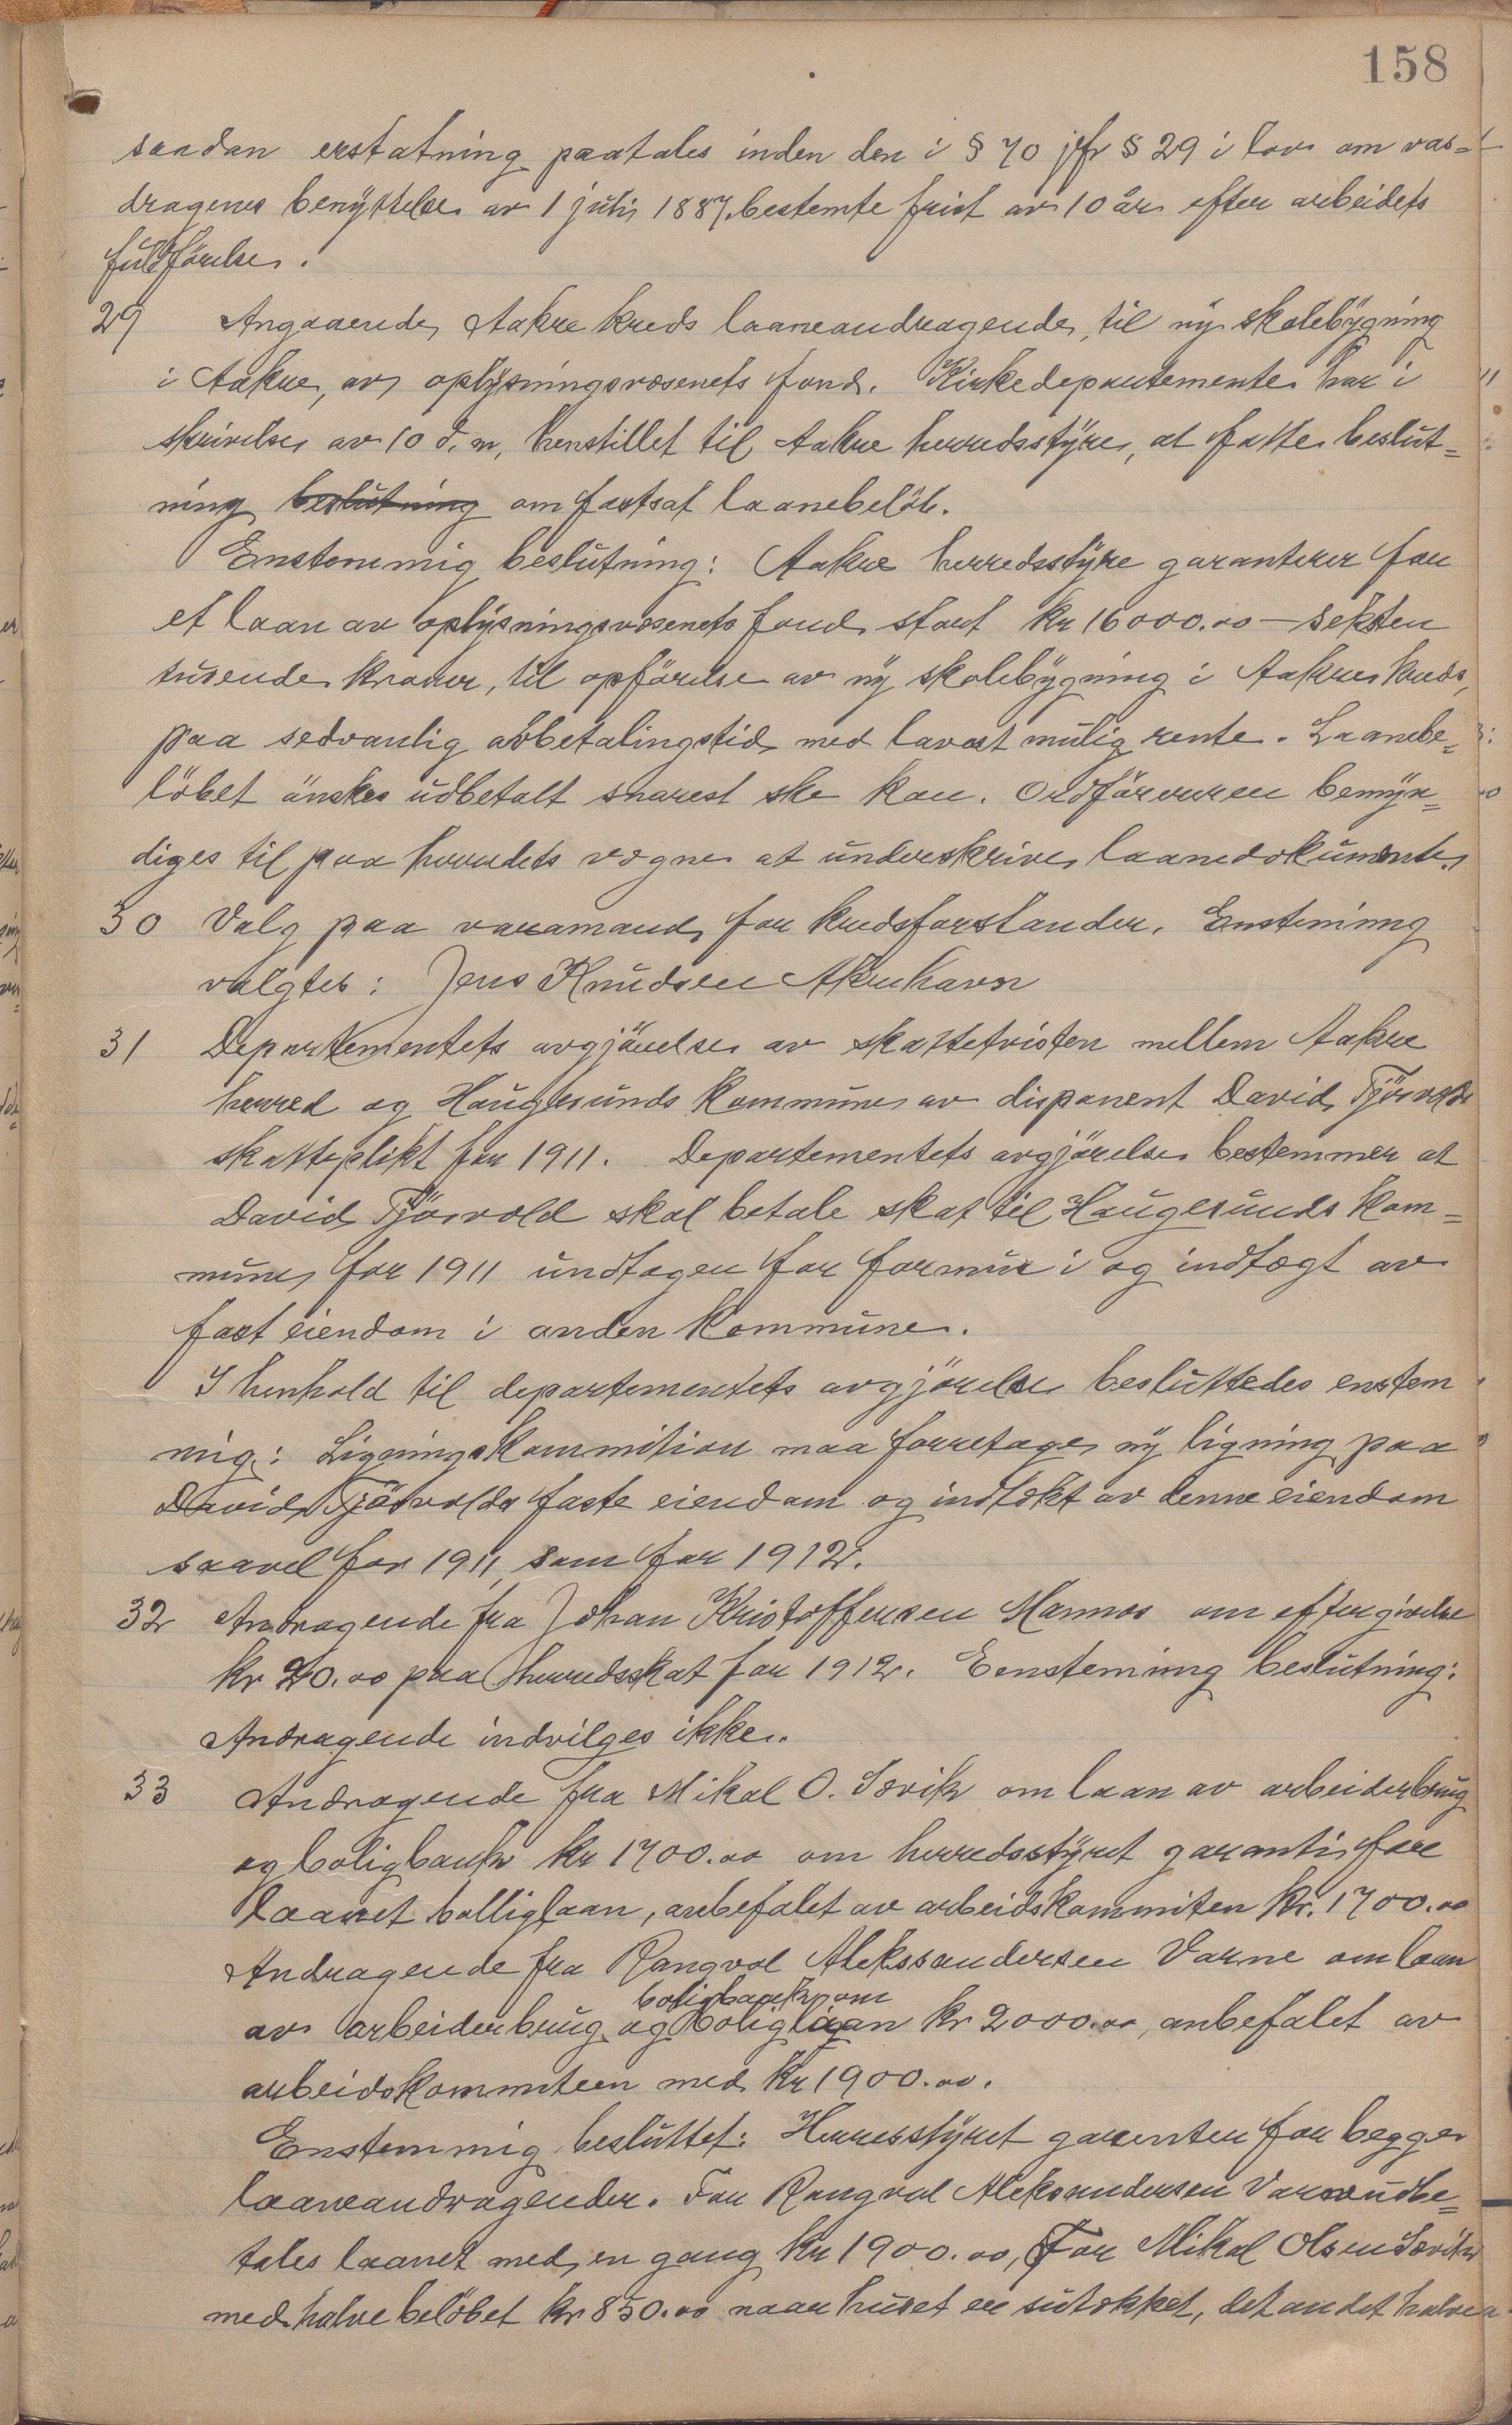 158
saadan erstatning paatales inden den i § 70 jfr § 29 i lov om vas=
dragenes benyttelse av 1 juli 1887, bestemte frist av 10 år efter arbeidets
fuldförelse.
29 Angaaende Aakre kreds laaneandragende, til ny skolebygning
i Aakre, av oplysningsvæsenets fond. Kirkedepartemente har i
skrivelse av 10 d. m, henstillet til Aakre herredsstyre, at fatte beslut=
ning beslutning om fastsat laanebelöb.
Enstemmig beslutning: Aakre herredsstyre garanterer for
et laan av oplysningsvæsenets fond, stort kr 16000.00 - seksten
tusende kroner, til opförelse av ny skolebygning i Aakre kreds,
paa sedvanlig avbetalingstid med lavest mulig rente. Laanebe=
löbet önskes udbetalt snarest ske kan. Ordföreren bemyn=
diges til paa herredets vegne at underskrive laanedokumente.
30 Valg paa varamand for kredsforstander. Enstemmig
valgtes: Jens Knudsen Åkrehavn
31 Departementets avgjörelse av skattetvisten mellem Aakre
herred og Haugesunds kommune av disponent David Tjösvolds
skatteplikt for 1911. Departementets avgjörelse bestemmer at
David Tjösvold skal betale skat til Haugesunds kom=
mune for 1911 undtagen for formue i og indtægt av
fast eiendom i anden kommune.
I henhold til departementets avgjörelse besluttedes enstem
mig: Ligningskommition maa forretage ny ligning paa
David Tjösvolds faste eiendom og indtekt av denne eiendom
saavel for 1911, som for 1912.
32 Andragende fra Johan Kristoffersen Mannes om eftergivelse
kr 20.00 paa herredsskat for 1912. Eenstemmig beslutning:
Andragende indvilges ikke.
33 Andragende fra Mikal O. Sævik om laan av arbeiderbrug
og boligbank kr 1700.00 om herredsstyret garanti for
laanet bolliglaan, anbefalet av arbeidskommiten kr. 1700.00
Andragende fra Rangvol Alekssandersen Varne om laan
boligbank om
av arbeiderbrug og boliglaan kr 2000.00, anbefalet av
arbeidskommiteen med kr 1900.00.
Enstemmig besluttet: Herresstyret garenter for begge
laaneandragender. For Rangvol Aleksandersen Varne udbe=
tales laanet med en gang kr 1900.00, For Mikal Olsen Sævik
med halve belöbet kr 850.00 naar huset er sutekket, det andet halve